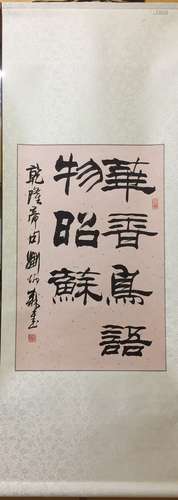 華香鳥語
物昭蘇
乾隆帝句劉炳森書